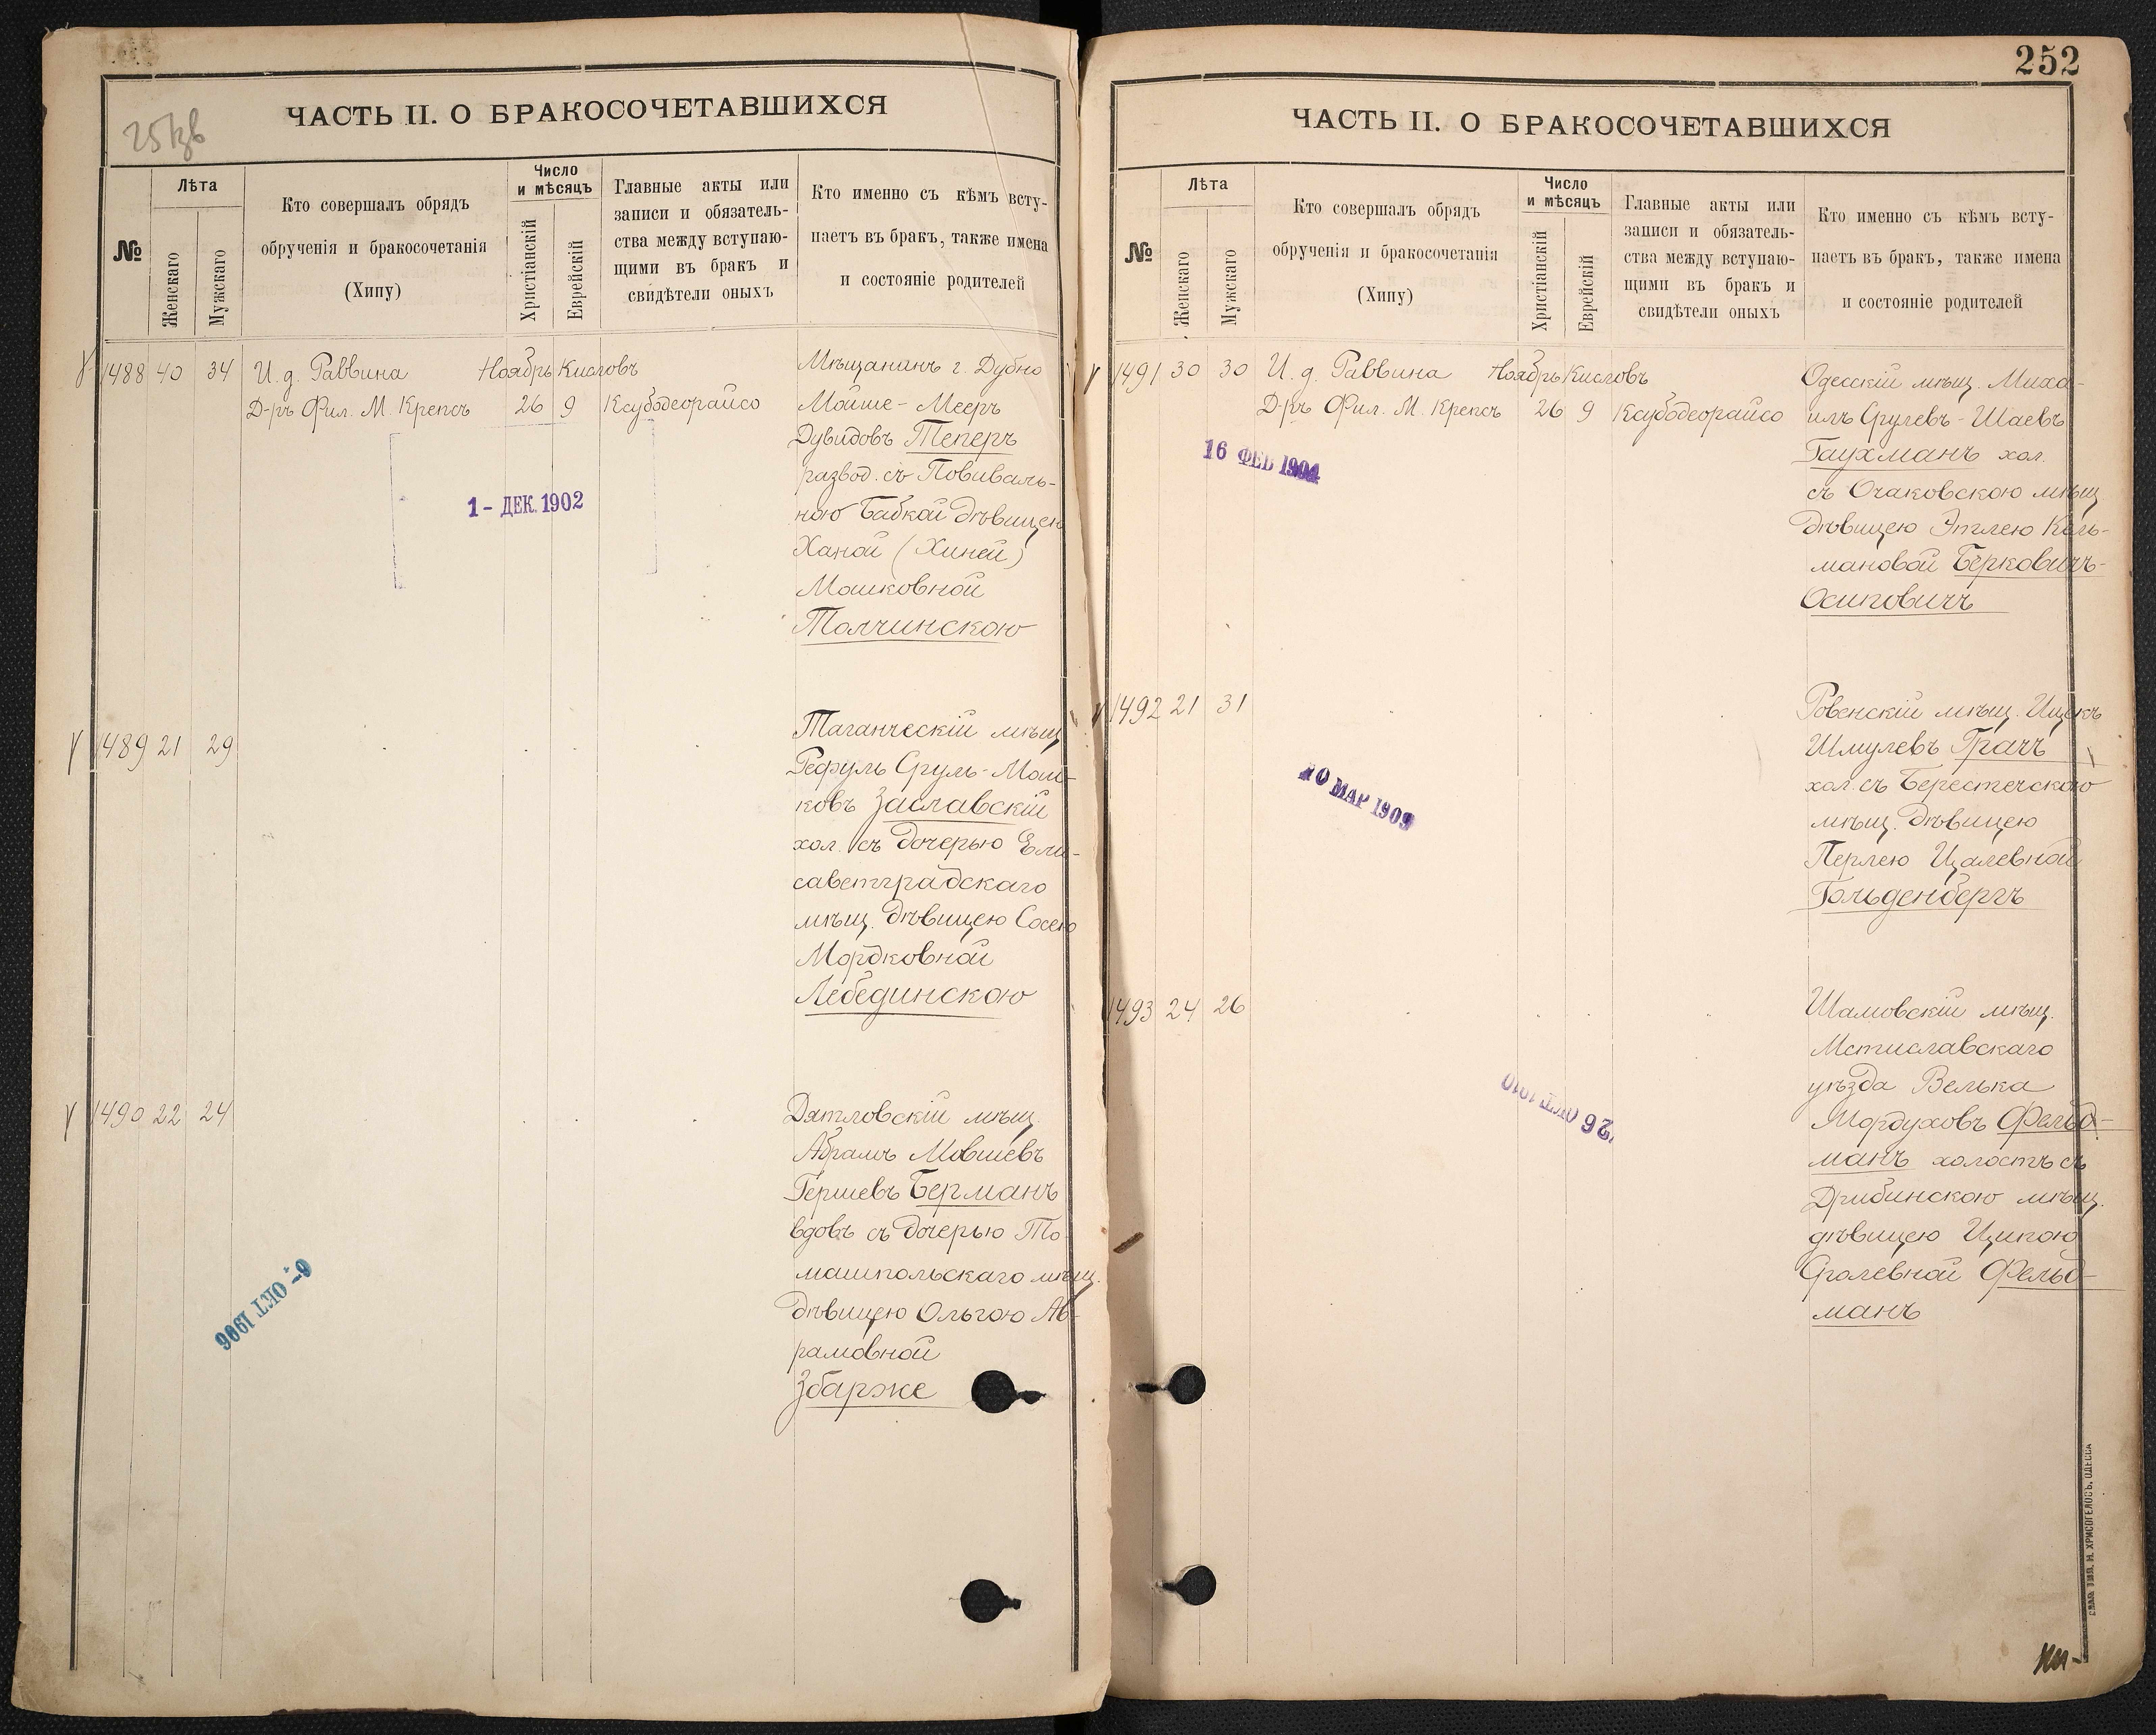 ЧАСТЬ II. О БРАКОСОЧЕТАВШИХСЯ
№
Лѣта
Женскаго
Мужскаго
Кто совершалъ обрядъ
обрученія и бракосочетанія
(Хипу)
Число
и мѣсяцъ
Христіанскій
Еврейскій
Главные акты или
записи и обязатель-
ства между вступаю-
щими въ бракъ и
свидѣтели оныхъ
Кто именно съ кѣмъ всту-
паетъ въ бракъ, также имена
и состояніе родителей
1488 40 34 И. д. Раввина Ноябрь Кисловъ
Д-ръ Фил. М. Крепсъ 26 9 Ксубодеорайсо
Мѣщанинъ г. Дубно
Мойше-Мееръ
Дувидовъ Теперъ
развод. съ Повиваль-
ною Бабкой дѣвицею
Ханой (Хиней)
Мошковной
Толчинскою
1- ДЕК. 1902
1489 21 29
Таганческій мѣщ.
Рефуль Сруль-Мош-
ковъ Заславскій
хол. съ дочерью Ели-
саветградскаго
мѣщ. дѣвицею Сосею
Мордковной
Лебединскою
1490 22 24
Дятловскій мѣщ.
Абрамъ Мовшевъ
Гершевъ Берманъ
вдовъ съ дочерью То-
машпольскаго мѣщ.
дѣвицею Ольгою Аб-
рамовной
Збарже
6- ОКТ 1906
252
ЧАСТЬ II. О БРАКОСОЧЕТАВШИХСЯ
№
Лѣта
Женскаго
Мужскаго
Кто совершалъ обрядъ
обрученія и бракосочетанія
(Хипу)
Число
и мѣсяцъ
Христіанскій
Еврейскій
Главные акты или
записи и обязатель-
ства между вступаю-
щими въ бракъ и
свидѣтели оныхъ
Кто именно съ кѣмъ всту-
паетъ въ бракъ, также имена
и состояніе родителей
1491 30 30 И. д. Раввина Ноябрь Кисловъ
Д-ръ Фил. М. Крепсъ 26 9 Ксубодеорайсо
Одесскій мѣщ. Миха-
илъ Срулевъ-Шаевъ
Гаухманъ хол.
съ Очаковскою мѣщ.
дѣвицею Этлею Каль-
мановой Берковичъ-
Осиповичъ
16 ФЕВ 1904
1492 21 31
Ровенскій мѣщ. Ицекъ
Шмулевъ Грачъ
хол. съ Берестечскою
мѣщ. дѣвицею
Перлею Цалевной
Гольденбергъ
10 МАР 1909
1493 24 26
Шамовскій мѣщ.
Мстиславскаго
уѣзда Велька
Мордуховъ Фельд-
манъ холостъ съ
Дрибинскою мѣщ.
дѣвицею Ципою
Сролевной Фельд-
манъ
26 ОКТ 1910
СЛАВ. ТИП. Н. ХРИСОГЕЛОСЪ, ОДЕССА